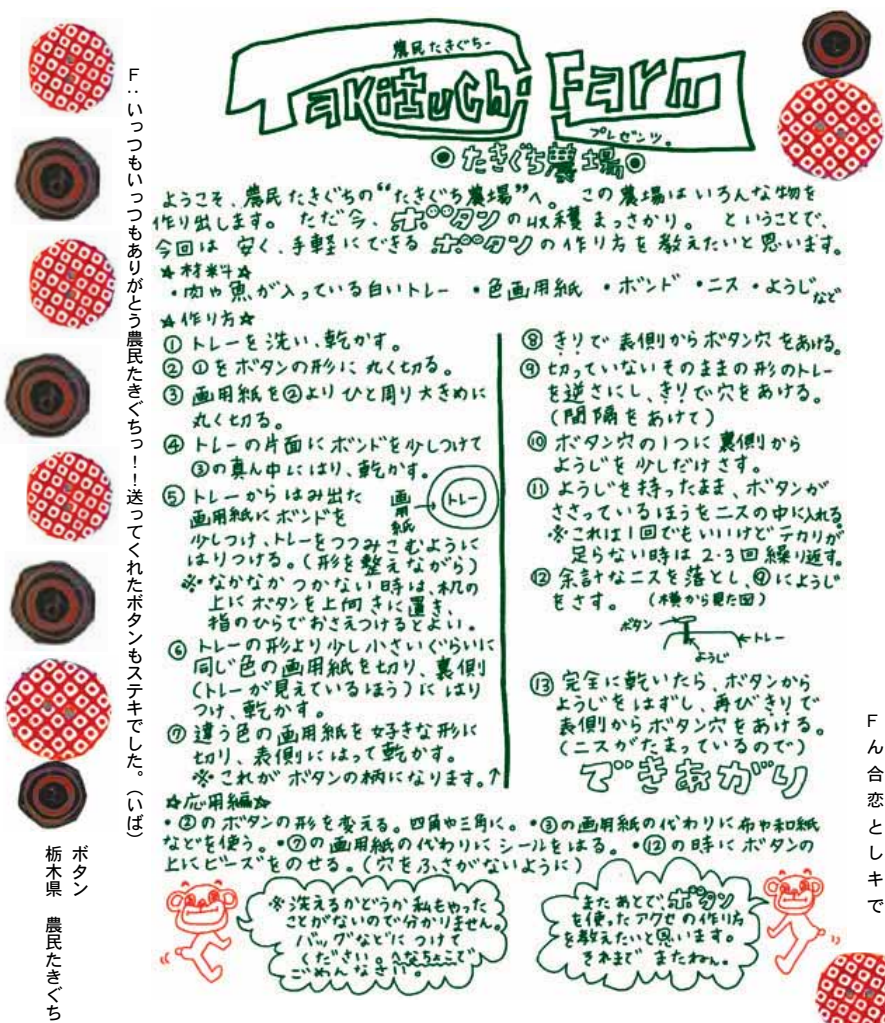 農民たきぐちー
TaKiguchi Farm
プレゼンツ。
◎たきぐち農場◎
ようこそ、農民たきぐちの“たきぐち農場”へ。この農場はいろんな物を
作り出します。ただ今、ボタンの収穫まっさかり。ということで、
今回は安く、手軽にできるボタンの作り方を教えたいと思います。
☆材料☆
・肉や魚が入っている白いトレー ・色画用紙 ・ボンド ・ニス ・ようじなど
☆作り方☆
① トレーを洗い、乾かす。
② ①をボタンの形に丸く切る。
③ 画用紙を②よりひと周り大きめに
丸く切る。
④ トレーの片面にボンドを少しつけて
③の真ん中にはり、乾かす。
⑤ トレーからはみ出た
画用紙にボンドを
少しつけ、トレーをつつみこむように
はりつける。(形を整えながら)
画用紙→
トレー
※なかなかつかない時は、机の
上にボタンを上向きに置き、
指のひらでおさえつけるとよい。
⑥ トレーの形より少し小さいぐらいに
同じ色の画用紙を切り、裏側
(トレーが見えているほう)にはり
つけ、乾かす。
⑦ 違う色の画用紙を好きな形に
切り、表側にはって乾かす。
※これがボタンの柄になります。↑
⑧ きりで表側からボタン穴をあける。
⑨ 切っていないそのままの形のトレー
を逆さにし、きりで穴をあける。
(間隔をあけて)
⑩ ボタン穴の1つに裏側から
ようじを少しだけさす。
⑪ ようじを持ったまま、ボタンが
ささっているほうをニスの中に入れる。
※これは1回でもいいけどテカリが
足らない時は2・3回繰り返す。
⑫ 余計なニスを落とし、⑨にようじ
をさす。 (横から見た図)
ボタン
←トレー
ようじ
⑬ 完全に乾いたら、ボタンから
ようじをはずし、再びきりで
表側からボタン穴をあける。
(ニスがたまっているので)
できあがり
☆応用編☆
・②のボタンの形を変える。四角や三角に。・③の画用紙の代わりに布や和紙
などを使う。・⑦の画用紙の代わりにシールをはる。・⑫の時にボタンの
上にビーズをのせる。(穴をふさがないように)
※洗えるかどうか私もやった
ことがないので分かりません。
バッグなどにつけて
ください。へなちょこで
ごめんなさい。
またあとでボタン
を使ったアクセの作り方
を教えたいと思います。
それまでまたねん。
F:いっつもいっつもありがとう農民たきぐちっ!!送ってくれたボタンもステキでした。(いば)
ボタン
栃木県 農民たきぐち
F
ん
合
恋
と
し
キ
で